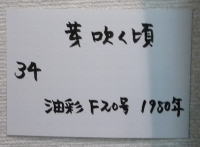 芽吹く頃
34
油彩 F20号 1980年